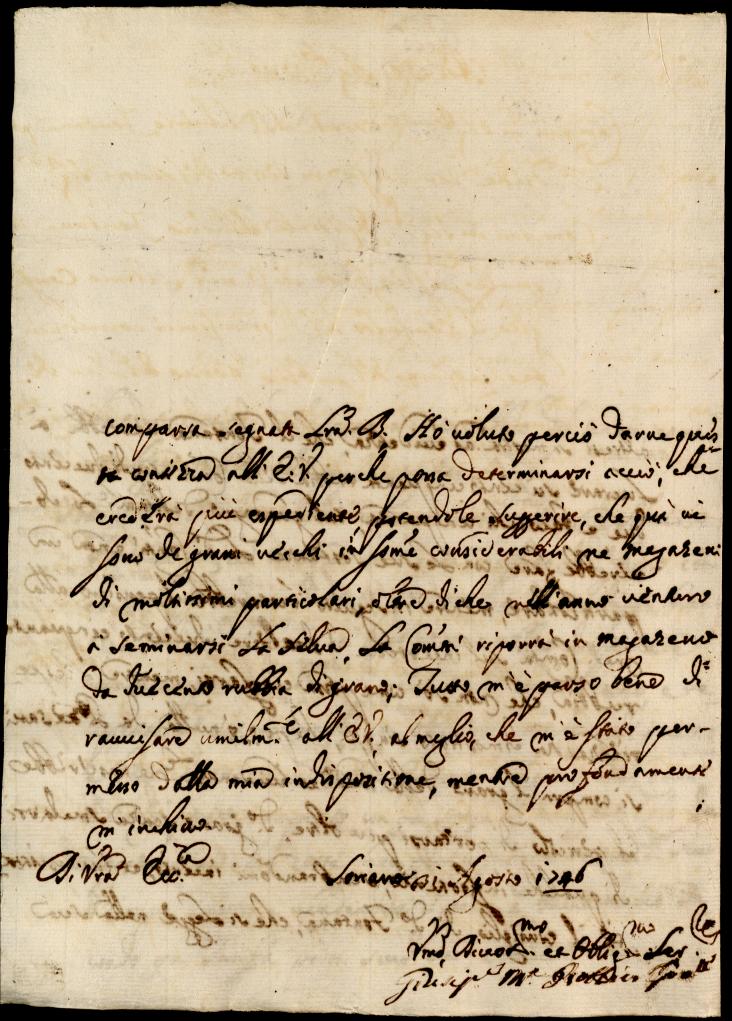 comparsa segnata Lra. B. Hò voluto perciò darne ques-
ta contezza all' E. V. perche possa determinarsi acciò, che
crederà più espediente potendole suggerire, che quà vi
sono de grani vecchi in some considerabili ne magazeni
di moltissimi particolari, oltre di che nell' anno venturo
à seminarsi La Selva, La Comtà riporrà in magazeno
da ducento rubbia di grano; Tutto m' è parso bene di
ravvisare umilmte. all' E. V. al meglio, che m' è stato per-
messo dalla mia indisposizione, mentre profondamente
m' inchino
Di Vra. Ecc.za
Soriano Agosto 1746
Vmo. Divot.mo et Obblig.mo Ser.
Giusep.e M.a